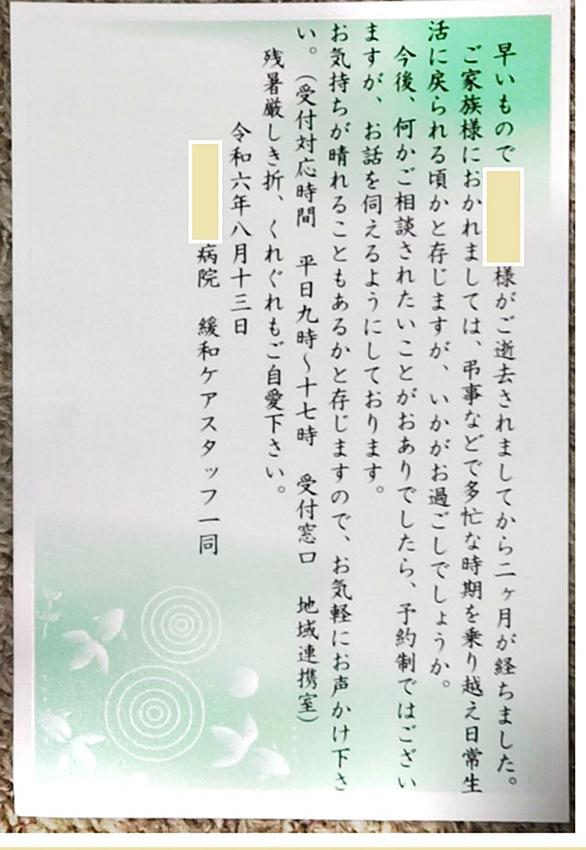 早いもので
様がご逝去されましてから二ヶ月が経ちました。
ご家族様におかれましては、弔事などで多忙な時期を乗り越え日常生
活に戻られる頃かと存じますが、いかがお過ごしでしょうか。
今後、何かご相談されたいことがおありでしたら、予約制ではござい
ますが、お話を伺えるようにしております。
お気持ちが晴れることもあるかと存じますので、お気軽にお声かけ下さ
い。（受付対応時間　平日九時～十七時　受付窓口　地域連携室）
残暑厳しき折、くれぐれもご自愛下さい。
令和六年八月十三日
病院　緩和ケアスタッフ一同